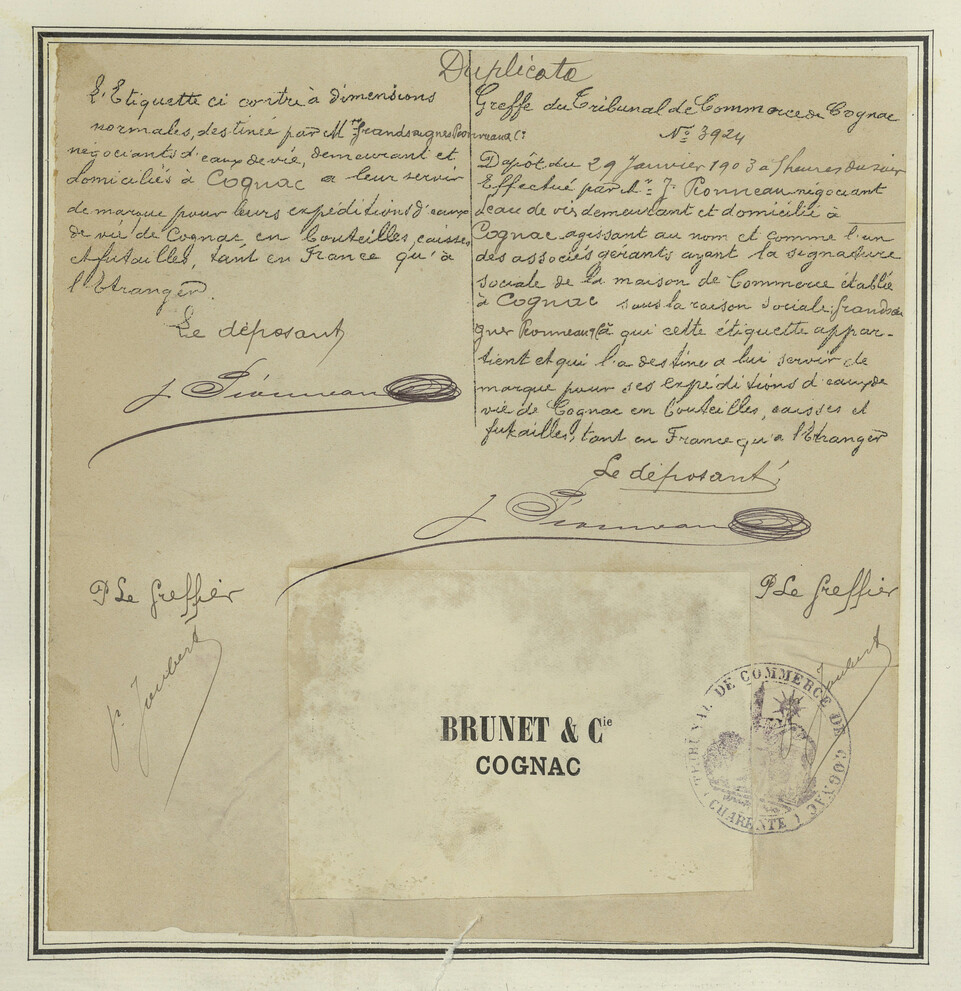 Duplicata
L'Etiquette ci contre à dimensions
normales, destinée par M.rs Grandsaignes Pionneau & Cie
négociants d'eaux de vie, demeurant et
domiciliés à Cognac a leur servir
de marque pour leurs expéditions d'eaux
de vie de Cognac en bouteilles, caisses
et futailles, tant en France qu'à
l'Etranger.
Le déposant
J Pionneau
P Le Greffier
Joubert
Greffe du Tribunal de Commerce de Cognac
No 3924
Dépôt du 29 Janvier 1903 a heures du soir
Effectué par Mr J. Pionneau négociant
d'eau de vie, demeurant et domicilié à
Cognac agissant au nom et comme l'un
des associés gérants ayant la signature
sociale de la maison de Commerce établie
à Cognac sous la raison sociale: Grandsai
gnes Pionneau & Cie à qui cette étiquette appar-
tient et qui l'a destine a lui servir de
marque pour ses expéditions d'eaux de
vie de Cognac en bouteilles, caisses et
futailles, tant en France qu'a l'Etranger
Le déposant
J Pionneau
P Le Greffier
Joubert
BRUNET & Cie
COGNAC
TRIBUNAL DE COMMERCE DE COGNAC
(CHARENTE)